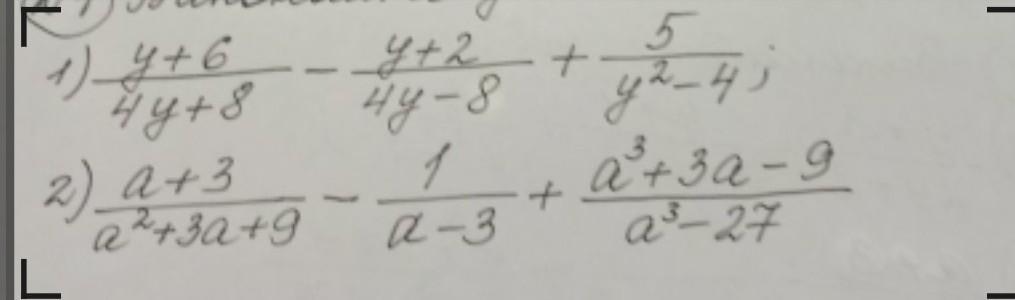 1) (y+6)/(4y+8) − (y+2)/(4y−8) + 5/(y²−4);
2) (a+3)/(a²+3a+9) − 1/(a−3) + (a³+3a−9)/(a³−27)